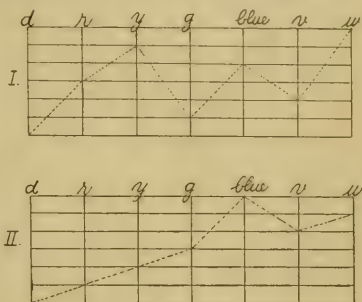 d r y g blue v w
I.
d r y g blue v w
II.